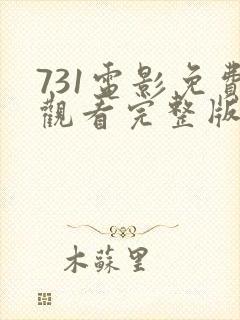 731電影免費
觀看完整版
木蘇里